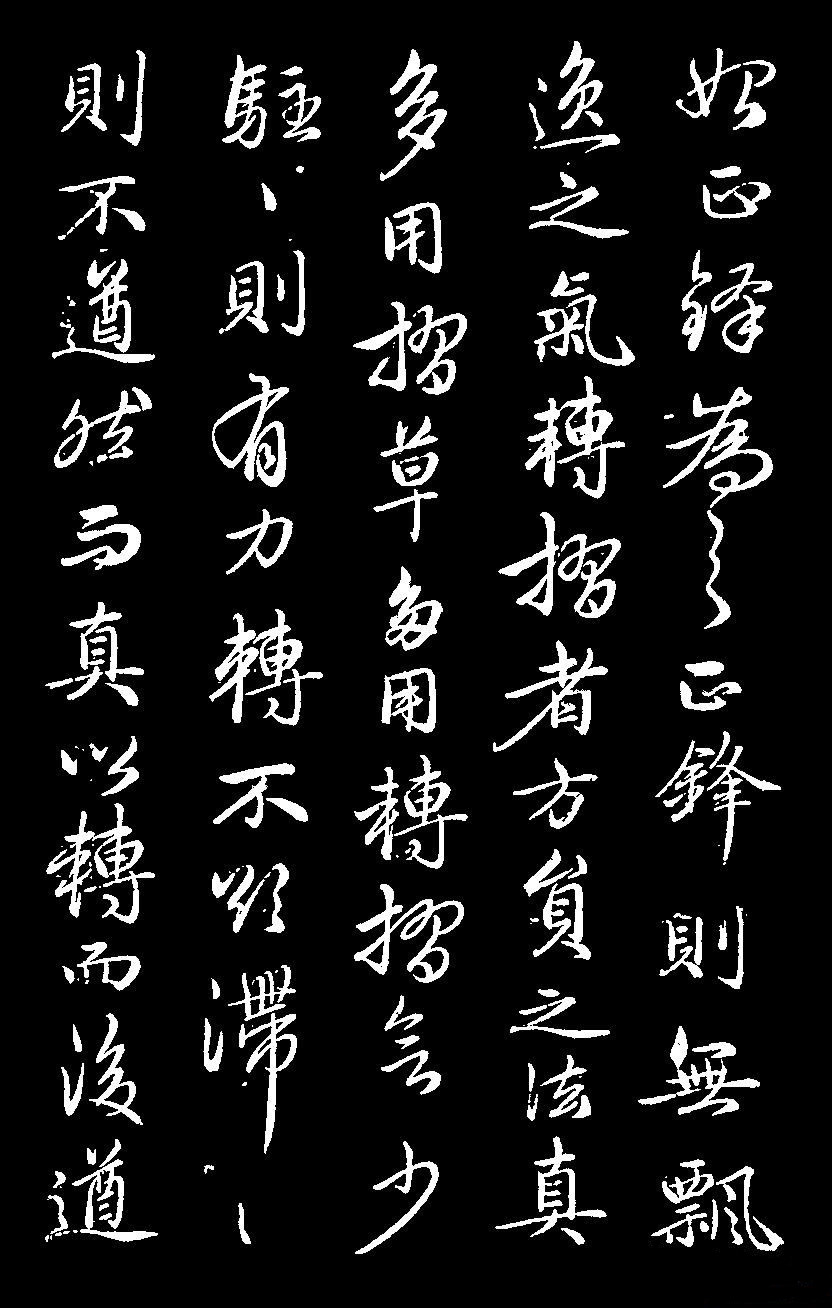 始正鋒為之正鋒則無飄
逸之氣轉摺者方員之法真
多用摺草多用轉摺会少
駐〻則有力轉不欲滯〻
則不遒然而真以轉而後遒